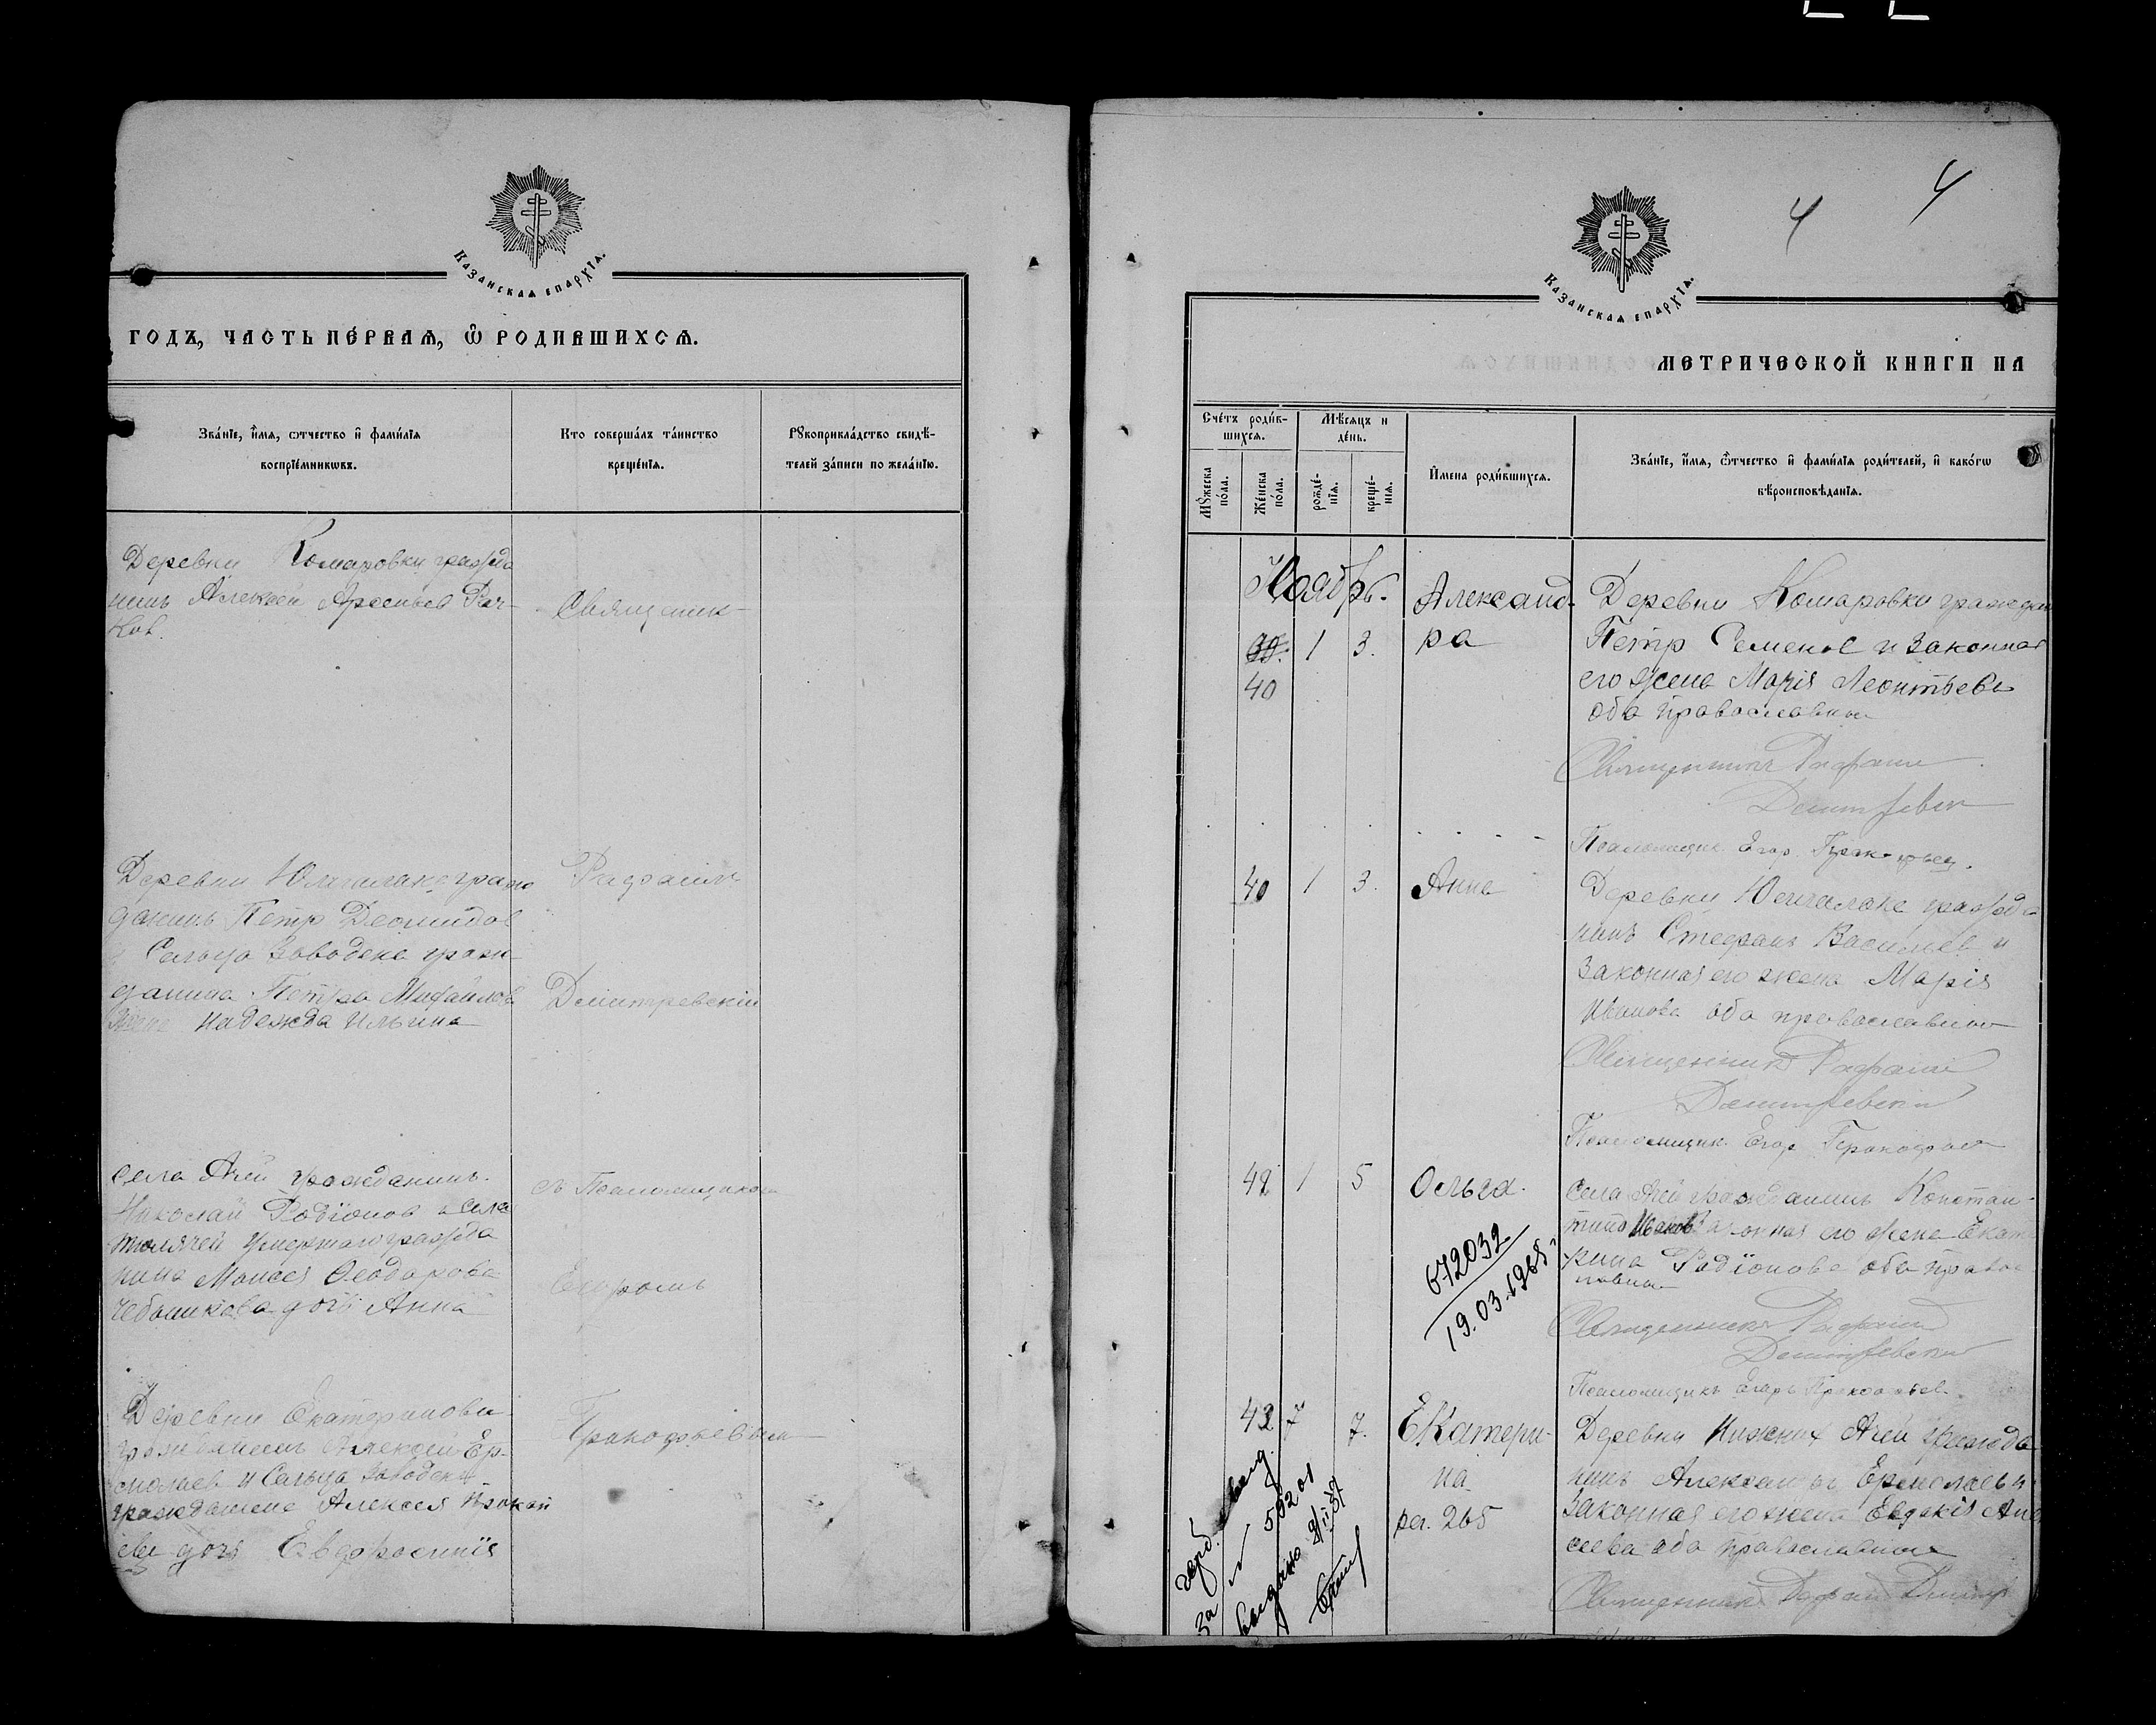 Казанская епархїя.
годъ, часть пе́рвая, ѿ родившихся.
Зва́нїе, и҆́мя, ѻтчество и҆ фами́лїя
воспрїе́мникѡвъ.
Кто соверша́лъ та́инство
креще́нїя.
Рꙋкоприкла́дство свидѣ́-
телей за́писи по жела́нїю.
Деревни Комаровки гражда
нинъ Алексей Арсеньев Рач-
ков.
Священник
Деревни граж
данинъ Петр Деомидов
и Сельца Заводска граж-
данина Петра Михайлова
жена Надежда Ильина
Рафаилъ
Дмитревскій
села Ачей гражданинъ
Николай Родїонов и села
умершаго гражда
нина Моисея Ѳеодорова
дочь Анна
съ Псаломщиком
Егоромъ
Деревни Екатериновки
гражданинъ Алексей Ер-
молаев и Сельца Заводска
гражданина Алексея Прокоп
ева дочь Евфросинія
Прокофьевым
4 4
Казанская епархїя.
метрической книги на
Сче́тъ роди́в-
шихся.
Мѣ́сяцъ и
де́нь.
Мꙋ́жеска
по́ла.
Же́нска
по́ла.
рожде́-
нїя.
креще́-
нїя.
И҆мена роди́вшихся.
Зва́нїе, и҆́мя, ѻ҆́тчество и҆ фами́лїя роди́телей, и҆ како́гѡ
вѣроисповѣ́данїя.
Ноябрь.
39. 1 3.
40
Александ-
ра
Деревни Комаровки граждан
Петр Семенов и законная
его жена Марія Леонтьева
оба православные
Священникъ Рафаил
Дмитревскій
Псаломщик Егор Прокофьев.
40 1 3. Анна
Деревни гражда
нинъ Стефанъ Васильев и
законная его жена Марія
Иванова оба православные
Священник Рафаил
Дмитревскій
Псаломщик Егор Прокофьев
42 1 5 Ольга.
672032
19.03.1965г
села Ачей гражданинъ Констан-
тинъ Иванов законная его жена Екате
рина Родїонова оба правос
лавные
Священникъ Рафаил
Дмитревскій
Псаломщикъ Егоръ Прокофьев
42 7. Екатери-
на
рег. 265
За герб.
N 50201
выдано
Деревни Нижних Ачей гражда
нинъ Ермолаев и
законная его жена Евдокія Алек
сеева оба православные
Священник Рафаил Дмитр